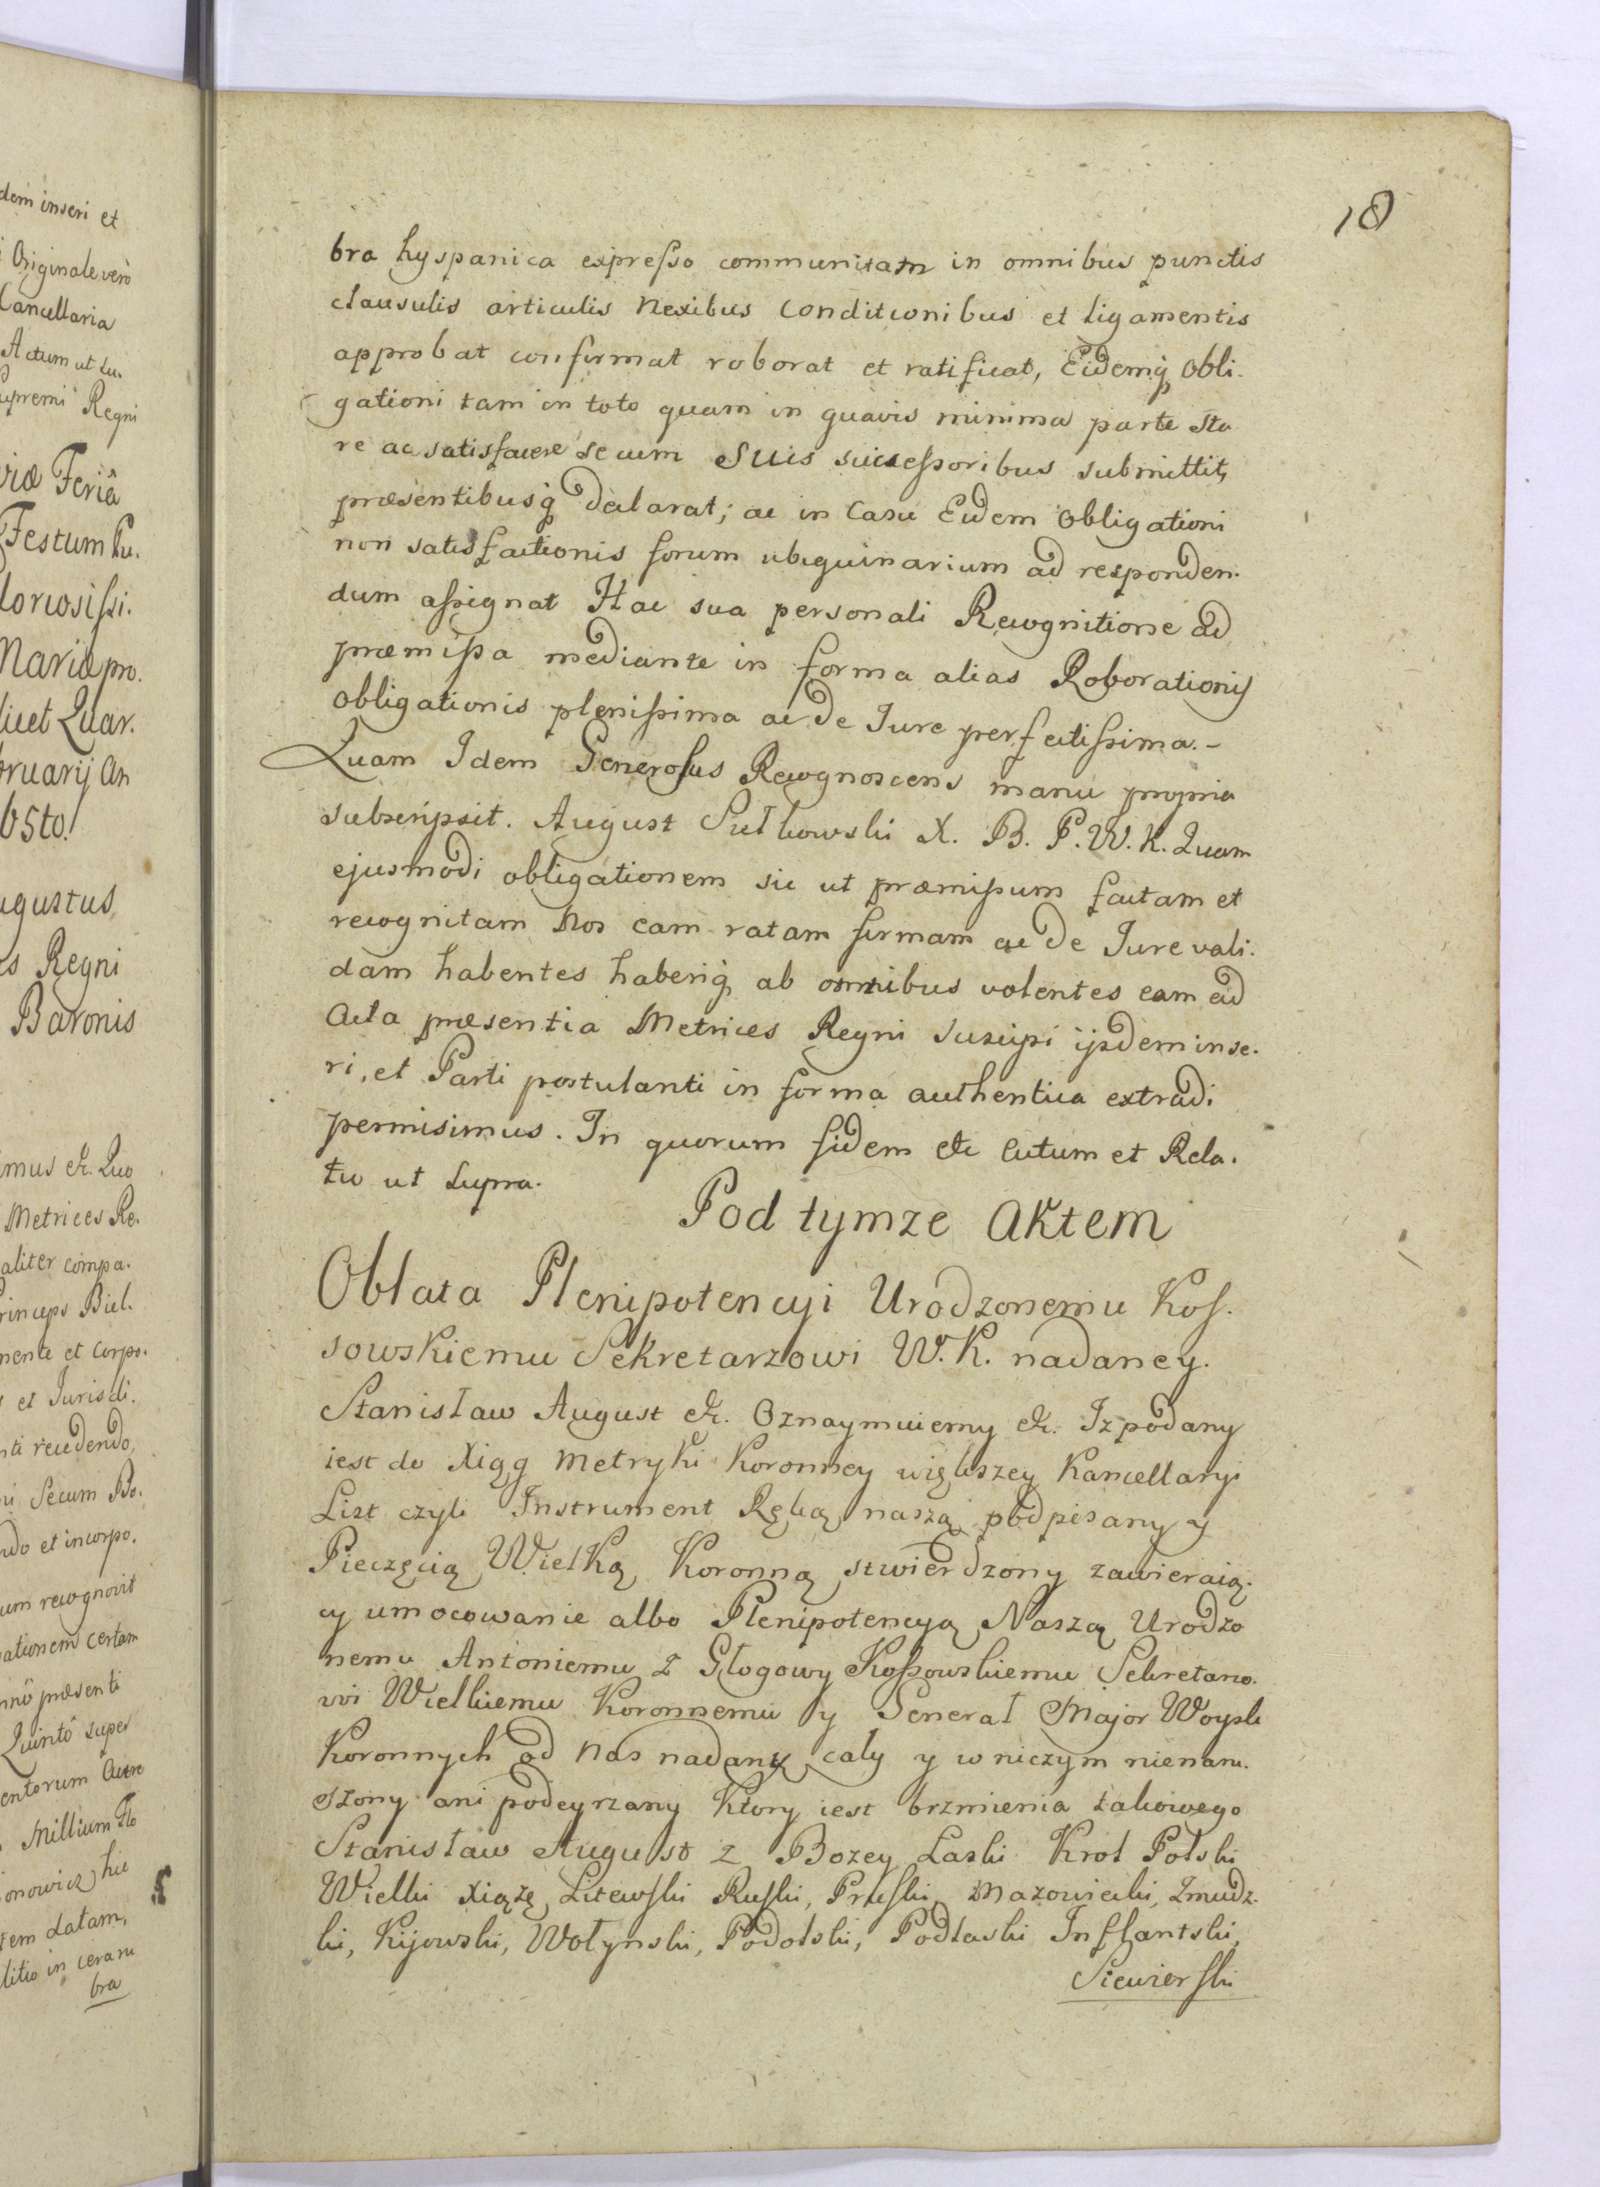 dem inseri et
Originale verò
Cancellaria
Actum ut Su.
Supremi Regni
viæ Feriâ
Festum Pu.
loriosissi.
Mariæ pro.
licet Quar.
bruarij An
65to.
ugustus
s Regni
Baronis
imus &c. Quo
Metrices Re.
aliter compa.
rinceps Biel.
mente et corpo.
et Jurisdi.
nti recedendo,
Secum Bo.
ndo et incorpo.
um recognovit
ationem certam
nnô præsenti
Quintô super
entorum Aure
Millium Flo
onowicz hic
tem datam,
litio in ceram
bra
18
bra hyspanica expresso communitam in omnibus punctis
clausulis articulis Nexibus Conditionibus et ligamentis
approbat confirmat roborat et ratificat, Eidemq obli.
gationi tam in toto quam in quavis minima parte Sta
re ac satisfacere secum Suis successoribus submittit,
præsentibusq declarat; ac in Casu Eidem Obligationi
non satisfactionis forum ubiquinarium ad responden.
dum assignat Hac sua personali Recognitione ad
præmissa mediante in forma alias Roborationis
Obligationis plenissima ac de Jure perfectissima.-
Quam Idem Generosus Recognoscens manu propria
subscripsit. August Sułkowski X. B. P. W. K. Quam
ejusmodi obligationem sic ut præmissum factam et
recognitam Nos eam ratam firmam ac de Jure vali.
dam habentes haberiq ab omnibus volentes eam ad
Acta præsentia Metrices Regni suscipi ijsdem inse.
ri, et Parti postulanti in forma authentica extradi
permisimus. In quorum fidem &c Actum et Rela.
tio ut Supra.
Pod tymze Aktem
Oblata Plenipotencyi Urodzonemu Kos.
sowskiemu Sekretarzowi W. K. nadaney.
Stanisław August &c. Oznaymuiemy &c. Iz podany
iest do Xiąg Metryki Koronney większey Kancellaryi
List czyli Instrument Ręką naszą podpisany y
Pieczęcią Wielką Koronną stwierdzony zawieraią.
cy umocowanie albo Plenipotencyą Naszą Urodzo
nemu Antoniemu z Głogowy Kossowskiemu Sekretarzo.
wi Wielkiemu Koronnemu y Generał Major Woysk
Koronnych od Nas nadany cały y w niczym nienaru.
szony ani podeyrzany Ktory iest brzmienia takowego
Stanisław August z Bozey Łaski Krol Polski
Wielki Xiążę Litewski Ruski, Pruski, Mazowiecki, Zmudz.
ki, Kijowski, Wołynski, Podolski, Podlaski Inflantski,
Siewierski